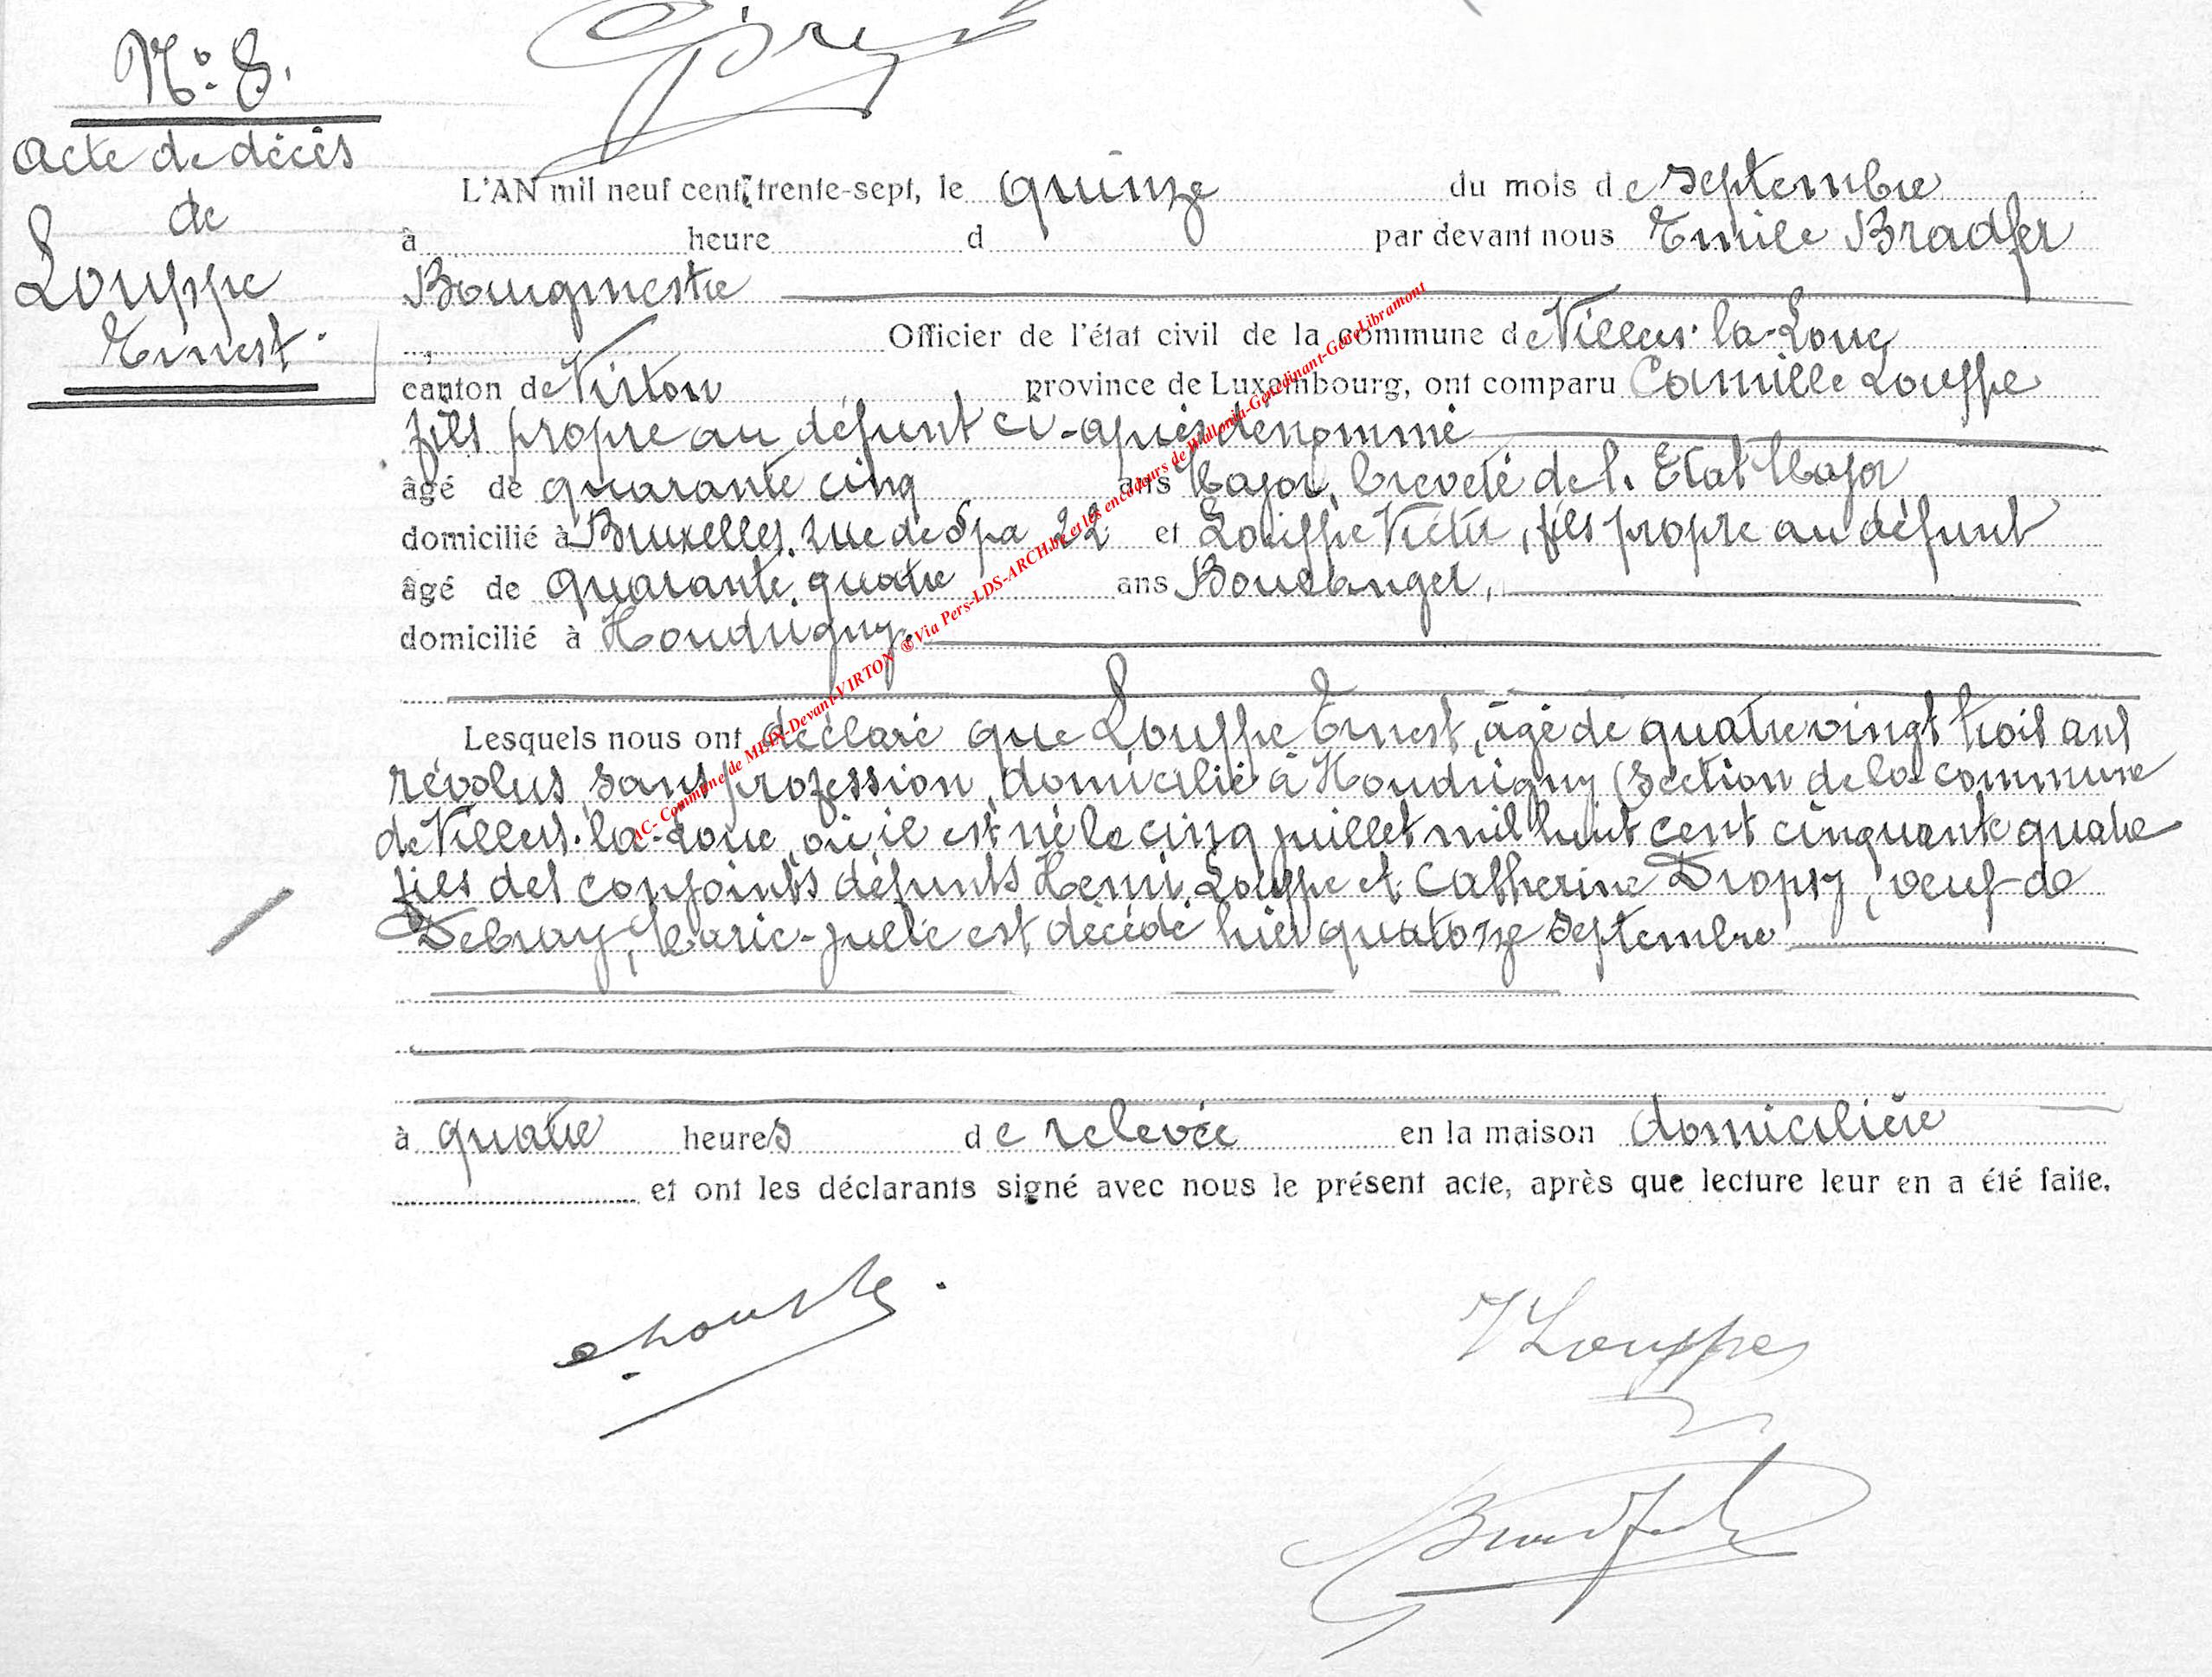 N° 8.
Acte de décès
de
Louppe
Ernest.
L'AN mil neuf cent trente-sept, le quinze du mois de septembre
à heure d par devant nous Emile Bradfer
Bourgmestre
Officier de l'état civil de la commune de Villers-la-Loue
canton de Virton province de Luxembourg, ont comparu Camille Louppe
fils propre au défunt ci-après dénommé
âgé de quarante cinq ans Major, breveté de l'Etat Major
domicilié à Bruxelles, rue de Spa 22 et Louppe Victor, fils propre au défunt
âgé de quarante-quatre ans Boulanger,
domicilié à Houdrigny.
Lesquels nous ont déclaré que Louppe Ernest, âgé de quatre vingt trois ans
révolus, sans profession, domicilié à Houdrigny (section de la commune
de Villers-la-Loue, où il est né le cinq juillet mil huit cent cinquante quatre
fils des conjoints défunts Henri Louppe et Catherine Dropsy, veuf de
Debray, Marie-Julie est décédé hier quatorze septembre
à quatre heures de relevée en la maison domicilière
et ont les déclarants signé avec nous le présent acte, après que lecture leur en a été faite.
VLouppe
Bradfer
AC- Commune de MEIX-Devant-VIRTON ® Via Pers-LDS-ARCH.be et les encodeurs de Wallonia-Genedinant-GeneLibramont